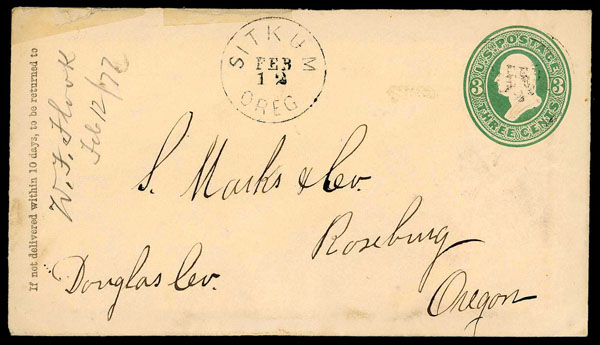 If not delivered within 10 days, to be returned to
W. F. Flook
Feb 12/77
SITKUM
FEB
12
OREG
U.S. POSTAGE
3 3
THREE CENTS
S. Marks & Co.
Roseburg
Douglas Co.
Oregon